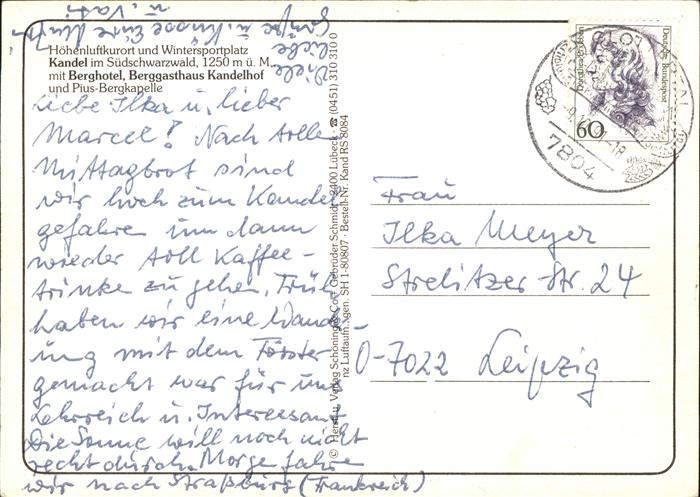 Höhenluftkurort und Wintersportplatz
Kandel im Südschwarzwald, 1250 m ü. M.,
mit Berghotel, Berggasthaus Kandelhof
und Pius-Bergkapelle
Liebe Ilka u. lieber
Marcel! Nach tollen
Mittagbrot sind
wir hoch zum Kandel
gefahren um dann
wieder toll Kaffee-
trinke zu gehen. Früh
haben wir eine Wander-
ung mit dem Förster
gemacht war für uns
Lehrreich u. Interessant
Die Sonne will noch nicht
recht durch. Morge fahre
wir nach Straßburg (Frankreich)
Viele
liebe
Grüße u. Küsse Eure Mutti
u. Vati
© Herst. u. Verlag Schöning & Co + Gebrüder Schmidt, 2400 Lübeck · ☎ (0451) 310 310 0
SH 1-80807 · Bestell-Nr. Kand RS 8084
Deutsche Bundespost
60
7804
Frau
Ilka Meyer
Strelitzer-Str. 24
O-7022 Leipzig